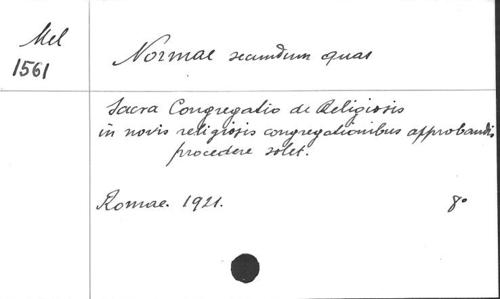 Mel
1561
Normae secundum quas
Sacra Congregatio de Religiosis
in novis religiosis congregationibus approbandis
procedere solet.
Romae. 1921. 8°